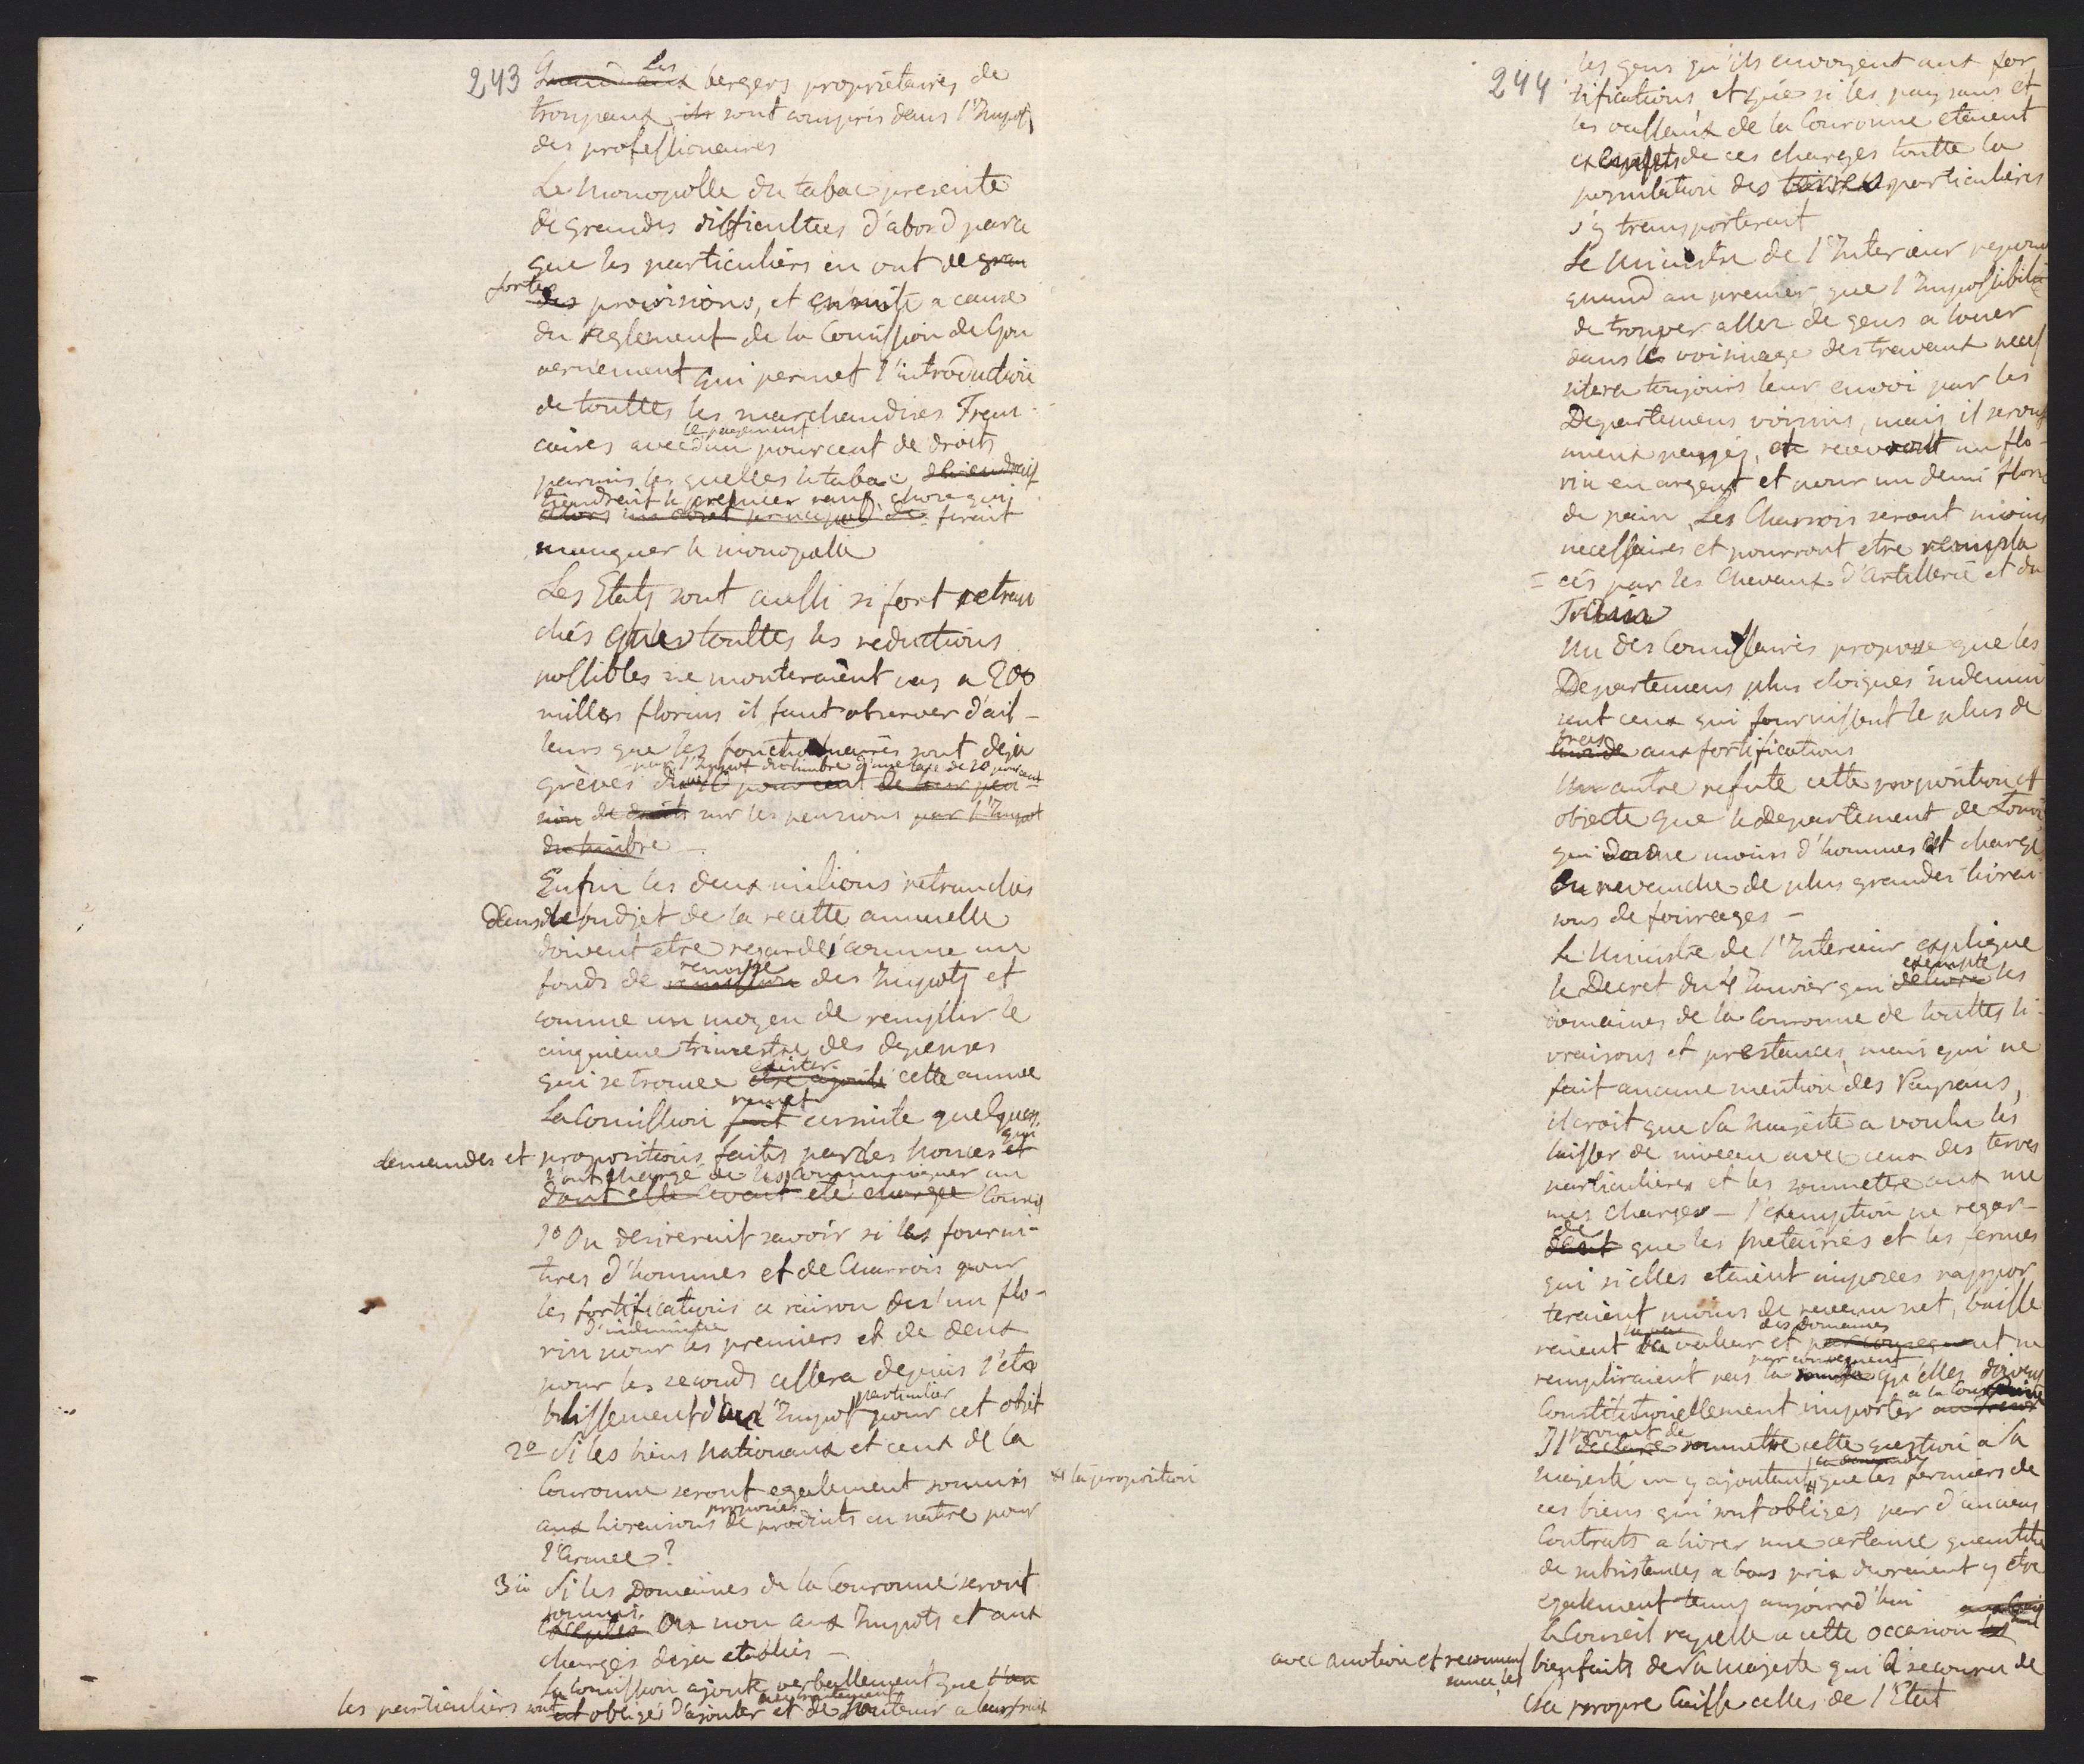 243
Les
Quand aux bergers propriétaires de
troupeaux, ils sont compris dans l'Impot
des professionaires
Le monopolle du tabac presente
de grandes difficultees d'abord parce
que les particuliers en ont de gran
fortes
des provisions, et ensuite a cause
du reglement de la Comission de Gou
vernement qui permet l'introduction
de touttes les marchandises Fran-
le payement
caises avec d'un pourcent de droits
parmis les quelles le tabac
tiendroit le premier rang chose qui
alors un objet principal de feroit
manquer le monopolle
Les Etats sont aussi si fort retran
chés que touttes les reductions
possibles ne monteraient pas a 200
milles florins il faut observer d'ail-
leurs que les fonctionnaires sont deja
par l'Impot du timbre d'une taxe de 10 pourcent
grèves du 10 pour cent de leur pen-
sion de droits sur les pensions par l'Impot
du timbre —
Enfin les deux milions retranchés
dans le budjet de la recette annuelle
doivent etre regardés comme un
remise
fonds de remission des Impots et
comme un moyen de remplir le
cinquième trimestre des depenses
exister
qui se trouve etre ajouté cette année
remet
La Comission fait ensuite quelques
qui
demandes et propositions faites par des hommes et
l'ont chargé de les communiquer au
dont elle avoit été chargée Conseil
1º On desireroit savoir si les fourni-
tures d'hommes et de Charrois pour
les fortifications a raison d'un flo-
d'indemnite
rin pour les premiers et de deux
pour les seconds cessera depuis l'eta
particulier
blissement d'un Impot pour cet objet
2º Si les biens nationaux et ceux de la
Couronne seront egalement soumis
proposées
aux livraisons de produits en nature pour
l'Armée?
3º Si les Domaines de la Couronne seront
soumis
exceptés ou non aux Impots et aux
charges deja etablies —
La Comission ajoute verbalement que l'on
les particuliers sont est obligés d'ajouter et de soutenir a leurs frais
244
les gens qu'ils envoyent aux for
tifications, et que si les paysans et
les vassaux de la Couronne etaient
exempts de ces charges toutte la
population des terres particulieres
s'y transporterait
Le Ministre de l'Interieur repond
quand au premier, que l'Impossibilité
de trouver assez de gens a louer
dans le voisinage des travaux neces
sitera toujours leur envoi par les
Departemens voisins, mais il seront
mieux payés, et recevront un flo-
rin en argent et pour un demi florin
de pain. Les Charrois seront moins
necessaires et pourront etre rempla
= cés par les Chevaux d'Artillerie et du
Train
Un des Comissaires propose que les
Departemens plus eloignés indemni
sent ceux qui fournissent le plus de
bras
aux fortifications
Un autre refute cette proposition et
objecte que le departement de Lomza
qui donne moins d'hommes est chargé
en revanche de plus grandes livrai
sons de fourages —
Le Ministre de l'Interieur explique
exempte
le Decret du Janvier qui delivre les
domaines de la Couronne de touttes li-
vraisons et prestances, mais qui ne
fait aucune mention des Paysans,
il croit que Sa Majesté a voulu les
laisser de niveau avec ceux des terres
particulieres et les soumettre aux me
mes charges — l'exemption ne regar-
de
dant que les metairies et les fermes
qui si elles etaient imposées rappor
teraient moins de revenu net, baisse
des domaines
raient de valeur et par consequent ne
par consequent
rempliraient pas la somme qu'elles doivent
a la Couronne
Constitutionellement importer au tresor
promet de
Il declare soumettre cette question a Sa
Majesté en y ajoutant # que les fermiers de
# la proposition
ces biens qui sont obligés par d'anciens
Contrats a livrer une certaine quantité
de subsistances a bas prix devraient y etre
egalement tenus aujourd'hui
Le Conseil rapelle a cette occasion les
avec emotion et reconnais
sance les bienfaits de Sa Majesté qui a secouru de
Sa propre Caisse celles de l'Etat